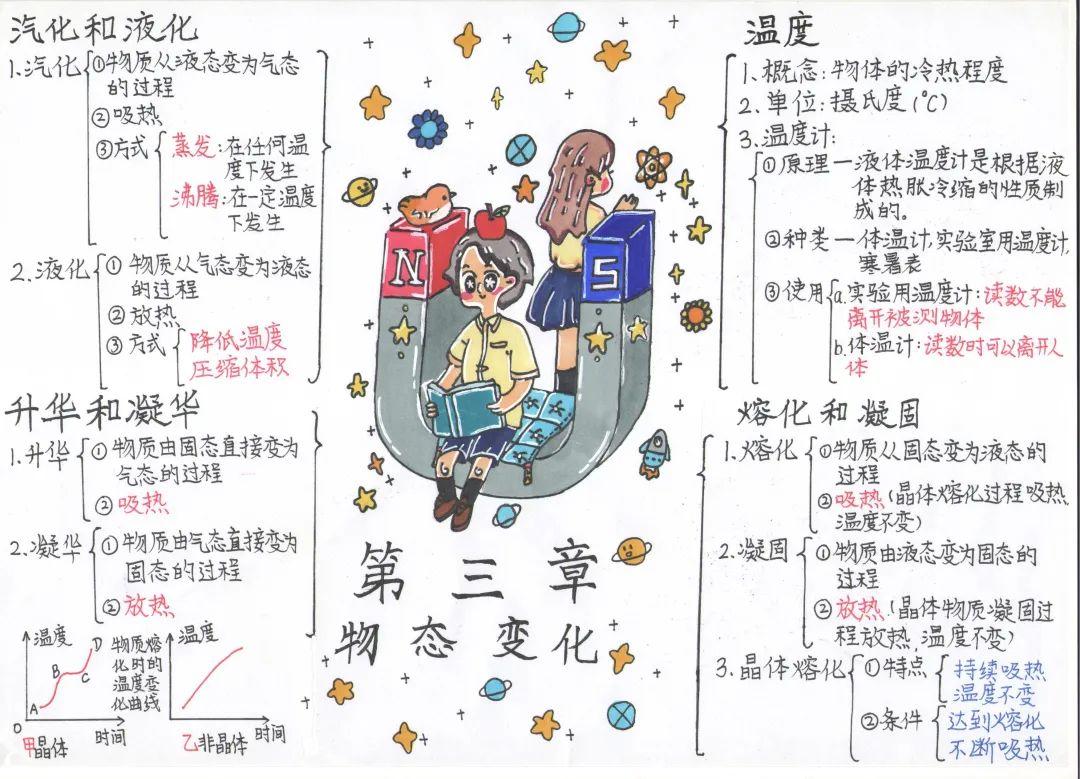 汽化和液化
1.汽化
①物质从液态变为气态
的过程
②吸热
③方式
蒸发:在任何温
度下发生
沸腾:在一定温度
下发生
2.液化
① 物质从气态变为液态
的过程
② 放热
③ 方式
降低温度
压缩体积
升华和凝华
1.升华
① 物质由固态直接变为
气态的过程
② 吸热
2.凝华
① 物质由气态直接变为
固态的过程
② 放热
温度
D
B
C
A
O
时间
甲晶体
物质熔
化时的
温度变
化曲线
温度
时间
乙非晶体
N
S
第三章
物态变化
温度
1.概念:物体的冷热程度
2.单位:摄氏度(℃)
3.温度计:
①原理—液体温度计是根据液
体热胀冷缩的性质制
成的。
②种类—体温计,实验室用温度计,
寒暑表
③使用
a.实验用温度计:读数不能
离开被测物体
b.体温计:读数时可以离开人
体
熔化和凝固
1.熔化
①物质从固态变为液态的
过程
②吸热(晶体熔化过程吸热,
温度不变)
2.凝固
①物质由液态变为固态的
过程
② 放热(晶体物质凝固过
程放热,温度不变)
3.晶体熔化
①特点
持续吸热
温度不变
②条件
达到熔化
不断吸热